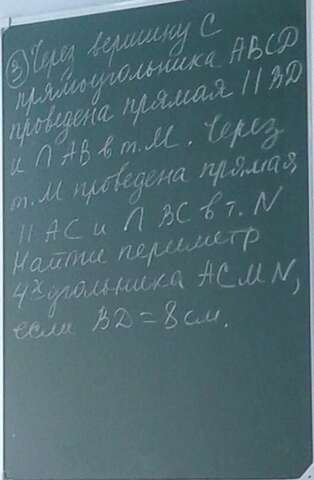 ③ Через вершину C
прямоугольника ABCD
проведена прямая || BD
и ∩ AB в т. M. Через
т. M проведена прямая,
|| AC и ∩ BC в т. N
Найти периметр
4х угольника ACMN,
если BD = 8 см.